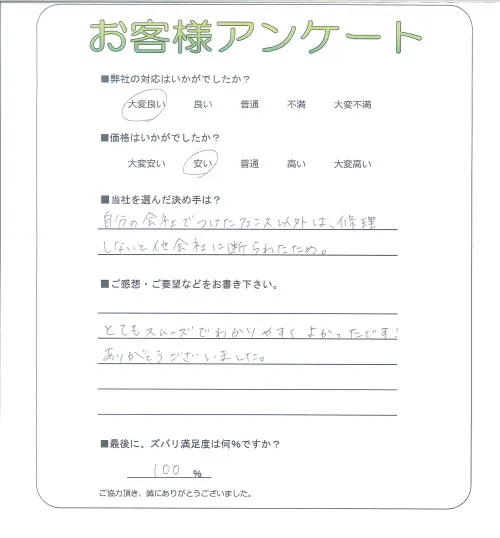 お客様アンケート
■弊社の対応はいかがでしたか？
大変良い 良い 普通 不満 大変不満
■価格はいかがでしたか？
大変安い 安い 普通 高い 大変高い
■当社を選んだ決め手は？
自分の会社でつけたフェンス以外は、修理
しないと他会社に断られたため。
■ご感想・ご要望などをお書き下さい。
とてもスムーズでわかりやすくよかったです!
ありがとうございました。
■最後に、ズバリ満足度は何％ですか？
100 %
ご協力頂き、誠にありがとうございました。